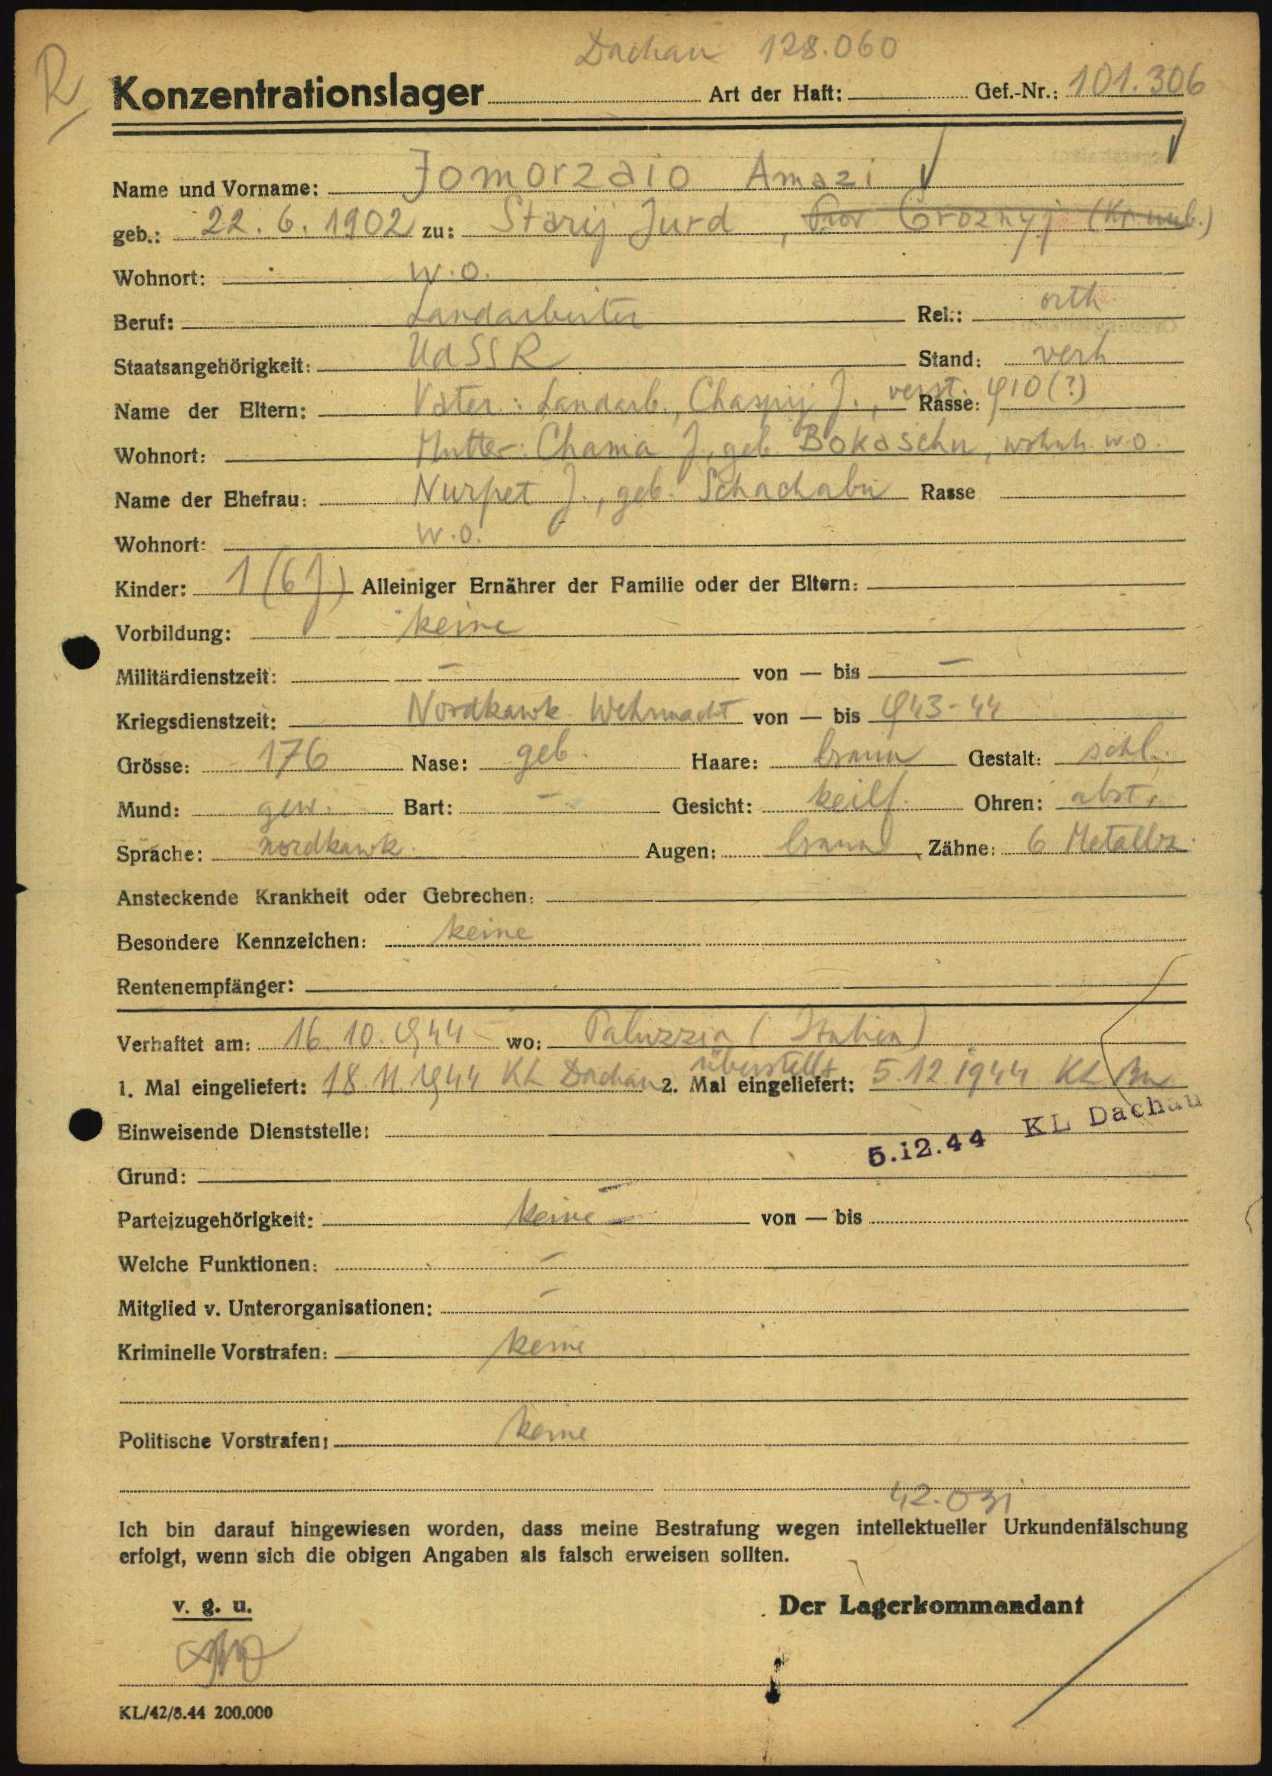 Dachau 128.060
R
Konzentrationslager Art der Haft: Gef.-Nr.: 101.306
Name und Vorname: Jomorzaio Amazi
geb.: 22.6.1902 zu: Starij Jurd, Prov Groznyj
Wohnort: w.o.
Beruf: Landarbeiter Rel.: orth
Staatsangehörigkeit: UdSSR Stand: verh
Name der Eltern: Vater: Landarb., Chaspij J., verst. 910(?) Rasse:
Wohnort: Mutter: Chama J., geb. Bokaschu, wohnh. w.o.
Name der Ehefrau: Nurpet J., geb. Schachabu Rasse
Wohnort: w.o.
Kinder: 1 (6 J) Alleiniger Ernährer der Familie oder der Eltern:
Vorbildung: keine
Militärdienstzeit: — von — bis —
Kriegsdienstzeit: Nordkawk. Wehrmacht von — bis 943-44
Grösse: 176 Nase: geb. Haare: braun Gestalt: schl.
Mund: gew. Bart: — Gesicht: keilf. Ohren: abst.
Sprache: nordkawk. Augen: braun Zähne: 6 Metallz.
Ansteckende Krankheit oder Gebrechen:
Besondere Kennzeichen: keine
Rentenempfänger:
Verhaftet am: 16.10.1944 wo: Paluzzia (Italien)
überstellt
1. Mal eingeliefert: 18.11.1944 KL Dachau 2. Mal eingeliefert: 5.12.1944 KL Bu
5.12.44 KL Dachau
Einweisende Dienststelle:
Grund:
Parteizugehörigkeit: keine — von — bis
Welche Funktionen: —
Mitglied v. Unterorganisationen: —
Kriminelle Vorstrafen: keine
Politische Vorstrafen: keine
Ich bin darauf hingewiesen worden, dass meine Bestrafung wegen intellektueller Urkundenfälschung
erfolgt, wenn sich die obigen Angaben als falsch erweisen sollten.
v. g. u. Der Lagerkommandant
KL/42/8.44 200.000